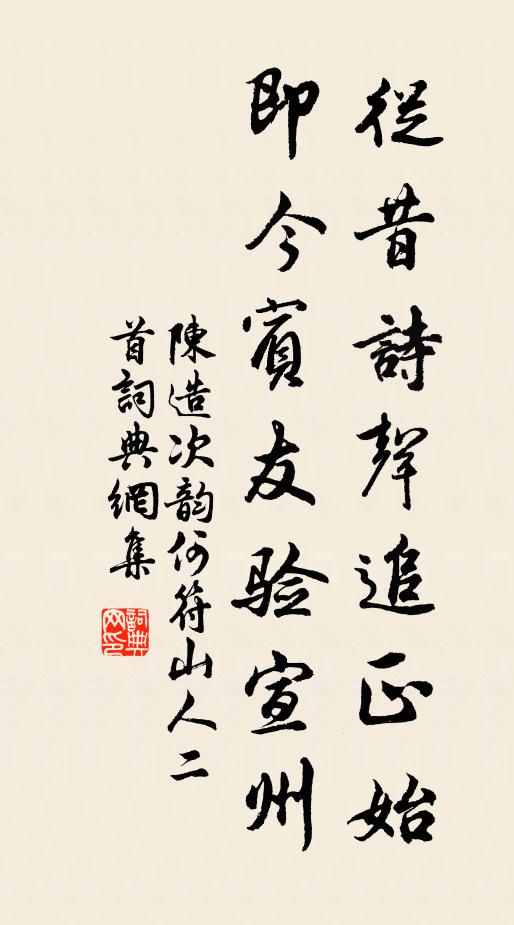 從昔詩聲追正始
即今賓友验宣州
陳造次韵何符山人二
首詞典網集
詞典
网印